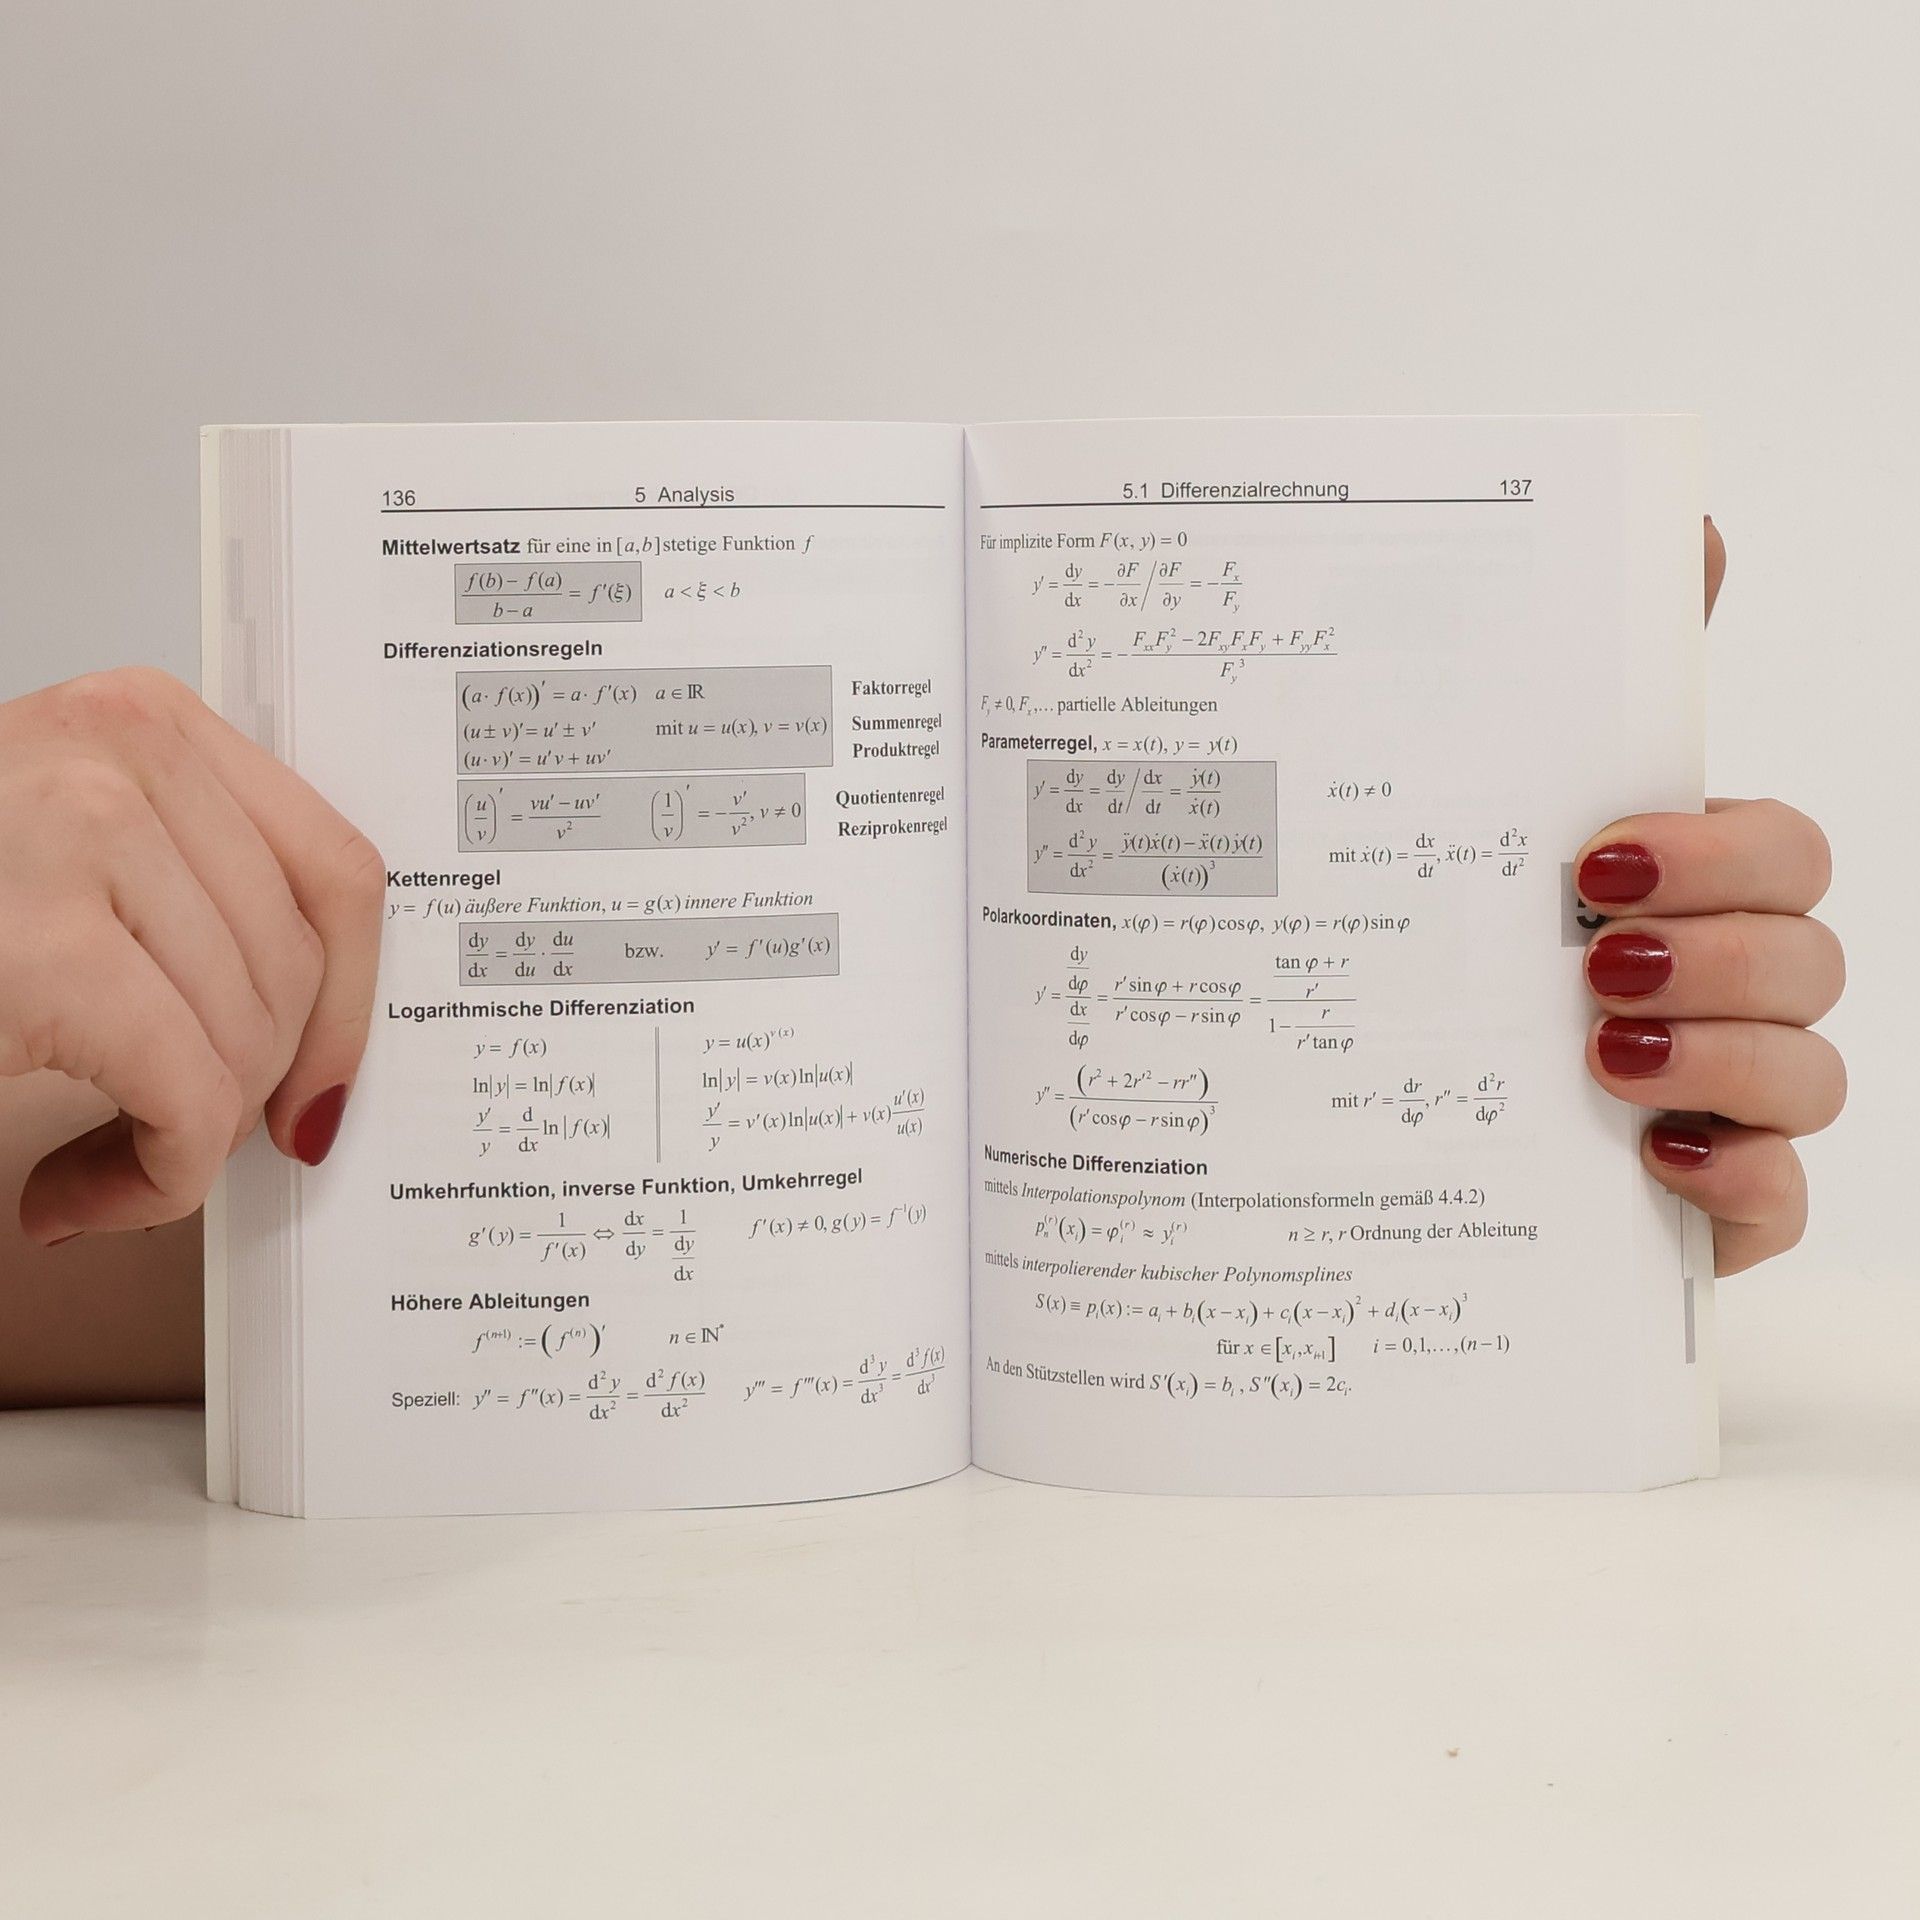 136 5 Analysis
Mittelwertsatz für eine in [a,b] stetige Funktion f
(f(b) − f(a))/(b − a) = f′(ξ) a < ξ < b
Differenziationsregeln
(a · f(x))′ = a · f′(x) a ∈ ℝ Faktorregel
(u ± v)′ = u′ ± v′ mit u = u(x), v = v(x) Summenregel
(u · v)′ = u′v + uv′ Produktregel
(u/v)′ = (vu′ − uv′)/v² (1/v)′ = −v′/v², v ≠ 0 Quotientenregel
Reziprokenregel
Kettenregel
y = f(u) äußere Funktion, u = g(x) innere Funktion
dy/dx = dy/du · du/dx bzw. y′ = f′(u)g′(x)
Logarithmische Differenziation
y = f(x) y = u(x)^v(x)
ln|y| = ln|f(x)| ln|y| = v(x)ln|u(x)|
y′/y = d/dx ln|f(x)| y′/y = v′(x)ln|u(x)| + v(x) u′(x)/u(x)
Umkehrfunktion, inverse Funktion, Umkehrregel
g′(y) = 1/f′(x) ⇔ dx/dy = 1/(dy/dx) f′(x) ≠ 0, g(y) = f⁻¹(y)
Höhere Ableitungen
f^(n+1) := (f^(n))′ n ∈ ℕ*
Speziell: y″ = f″(x) = d²y/dx² = d²f(x)/dx² y‴ = f‴(x) = d³y/dx³ = d³f(x)/dx³
5.1 Differenzialrechnung 137
Für implizite Form F(x, y) = 0
y′ = dy/dx = −∂F/∂x / ∂F/∂y = −F_x/F_y
y″ = d²y/dx² = −(F_xx F_y² − 2F_xy F_x F_y + F_yy F_x²)/F_y³
F_y ≠ 0, F_x,… partielle Ableitungen
Parameterregel, x = x(t), y = y(t)
y′ = dy/dx = dy/dt / dx/dt = ẏ(t)/ẋ(t) ẋ(t) ≠ 0
y″ = d²y/dx² = (ÿ(t)ẋ(t) − ẍ(t)ẏ(t))/(ẋ(t))³ mit ẋ(t) = dx/dt, ẍ(t) = d²x/dt²
Polarkoordinaten, x(φ) = r(φ)cosφ, y(φ) = r(φ)sinφ
y′ = (dy/dφ)/(dx/dφ) = (r′sinφ + rcosφ)/(r′cosφ − rsinφ) = ((tanφ + r)/r′)/(1 − r/(r′tanφ))
y″ = (r² + 2r′² − rr″)/(r′cosφ − rsinφ)³ mit r′ = dr/dφ, r″ = d²r/dφ²
Numerische Differenziation
mittels Interpolationspolynom (Interpolationsformeln gemäß 4.4.2)
p_n^(r)(x_i) = φ_i^(r) ≈ y_i^(r) n ≥ r, r Ordnung der Ableitung
mittels interpolierender kubischer Polynomsplines
S(x) ≡ p_i(x) := a_i + b_i(x − x_i) + c_i(x − x_i)² + d_i(x − x_i)³
für x ∈ [x_i, x_i+1] i = 0,1,…,(n − 1)
An den Stützstellen wird S′(x_i) = b_i , S″(x_i) = 2c_i.